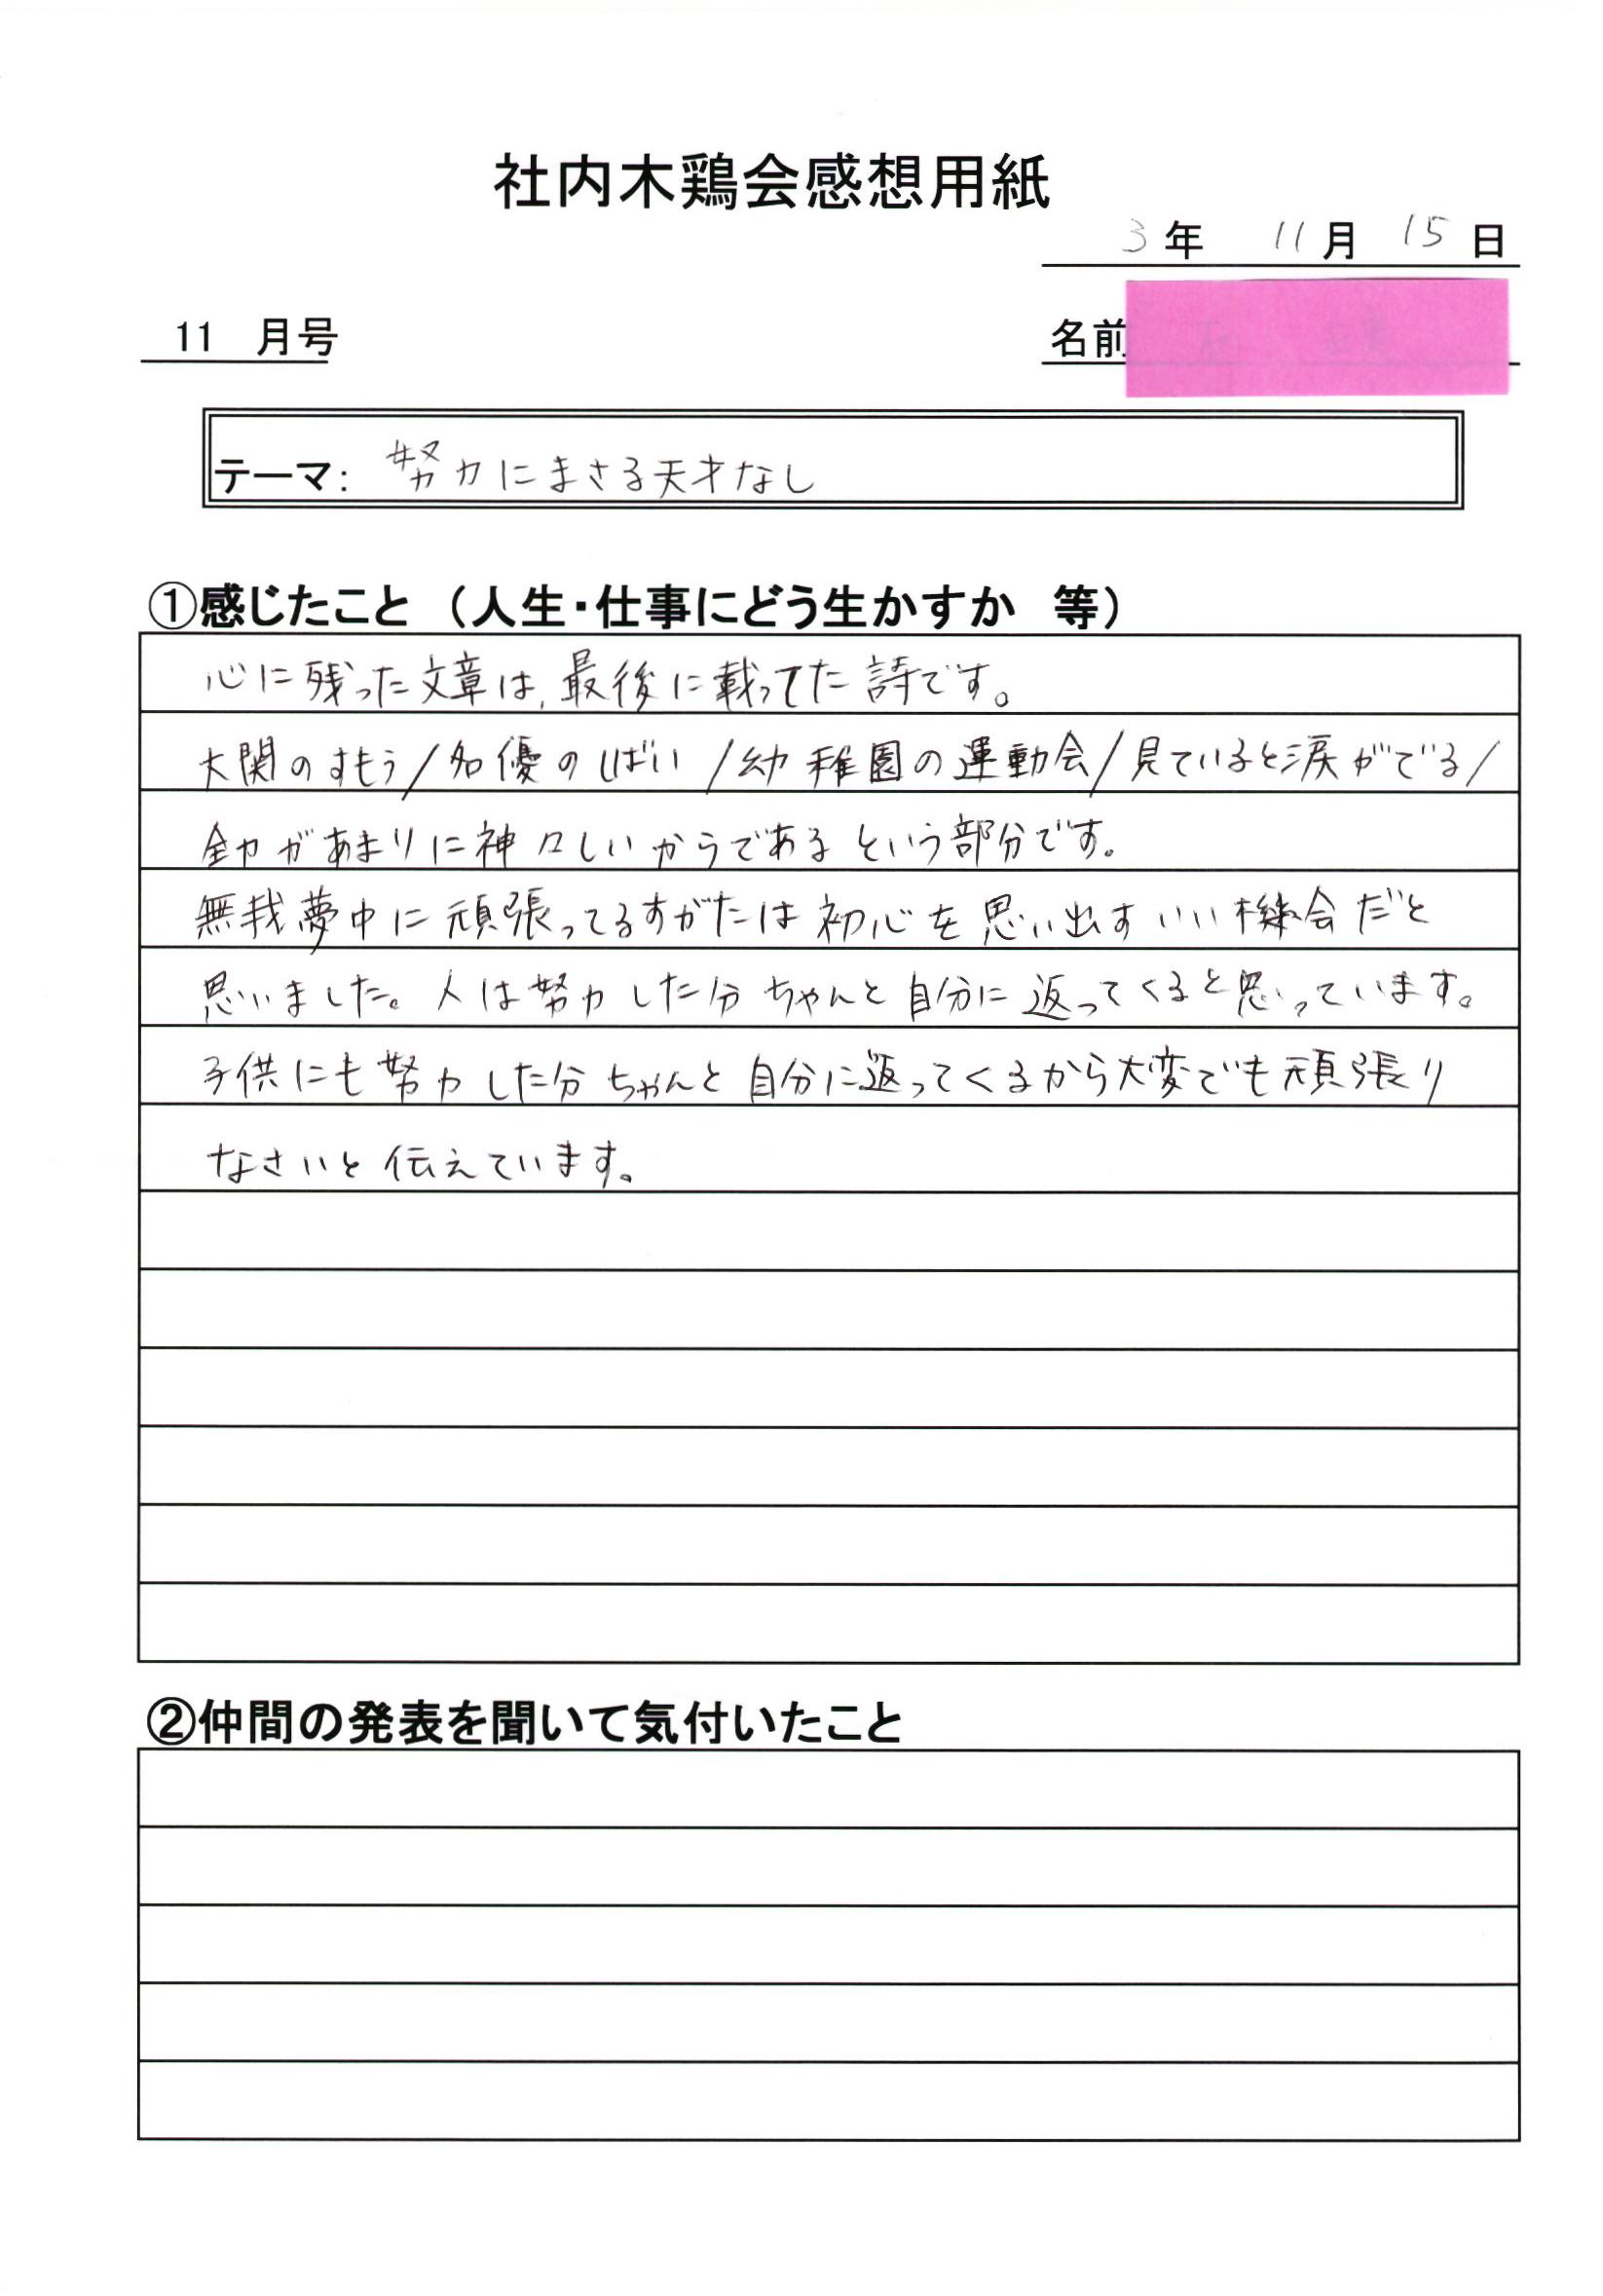 社内木鶏会感想用紙
3年 11月 15日
11 月号
名前
テーマ: 努力にまさる天才なし
①感じたこと （人生・仕事にどう生かすか 等）
心に残った文章は、最後に載ってた詩です。
大関のすもう/名優のしばい/幼稚園の運動会/見ていると涙がでる/
全力があまりに神々しいからである という部分です。
無我夢中に頑張ってるすがたは初心を思い出すいい機会だと
思いました。人は努力した分ちゃんと自分に返ってくると思っています。
子供にも努力した分ちゃんと自分に返ってくるから大変でも頑張り
なさいと伝えています。
②仲間の発表を聞いて気付いたこと